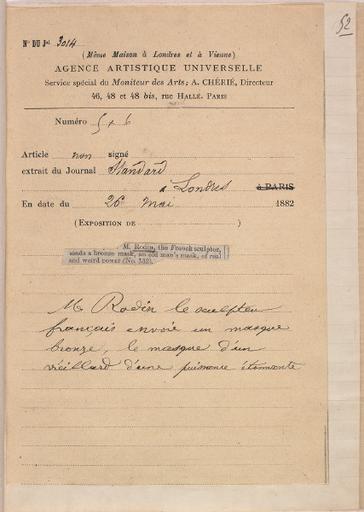 52
N° DU Jal 3014
(Même Maison à Londres et à Vienne)
AGENCE ARTISTIQUE UNIVERSELLE
Service spécial du Moniteur des Arts; A. CHÉRIÉ, Directeur
46, 48 et 48 bis, rue HALLÉ. PARIS
Numéro 5 x 6
Article non signé
extrait du Journal Standard
à Londres à PARIS
En date du 26 Mai 1882
(EXPOSITION DE )
M. Rodin, the French sculptor,
sends a bronze mask, an old man's mask, of real
and weird power (No. 532).
M Rodin le sculpteur
français envoie un masque
bronze, le masque d'un
vieillard d'une puissance étonnante